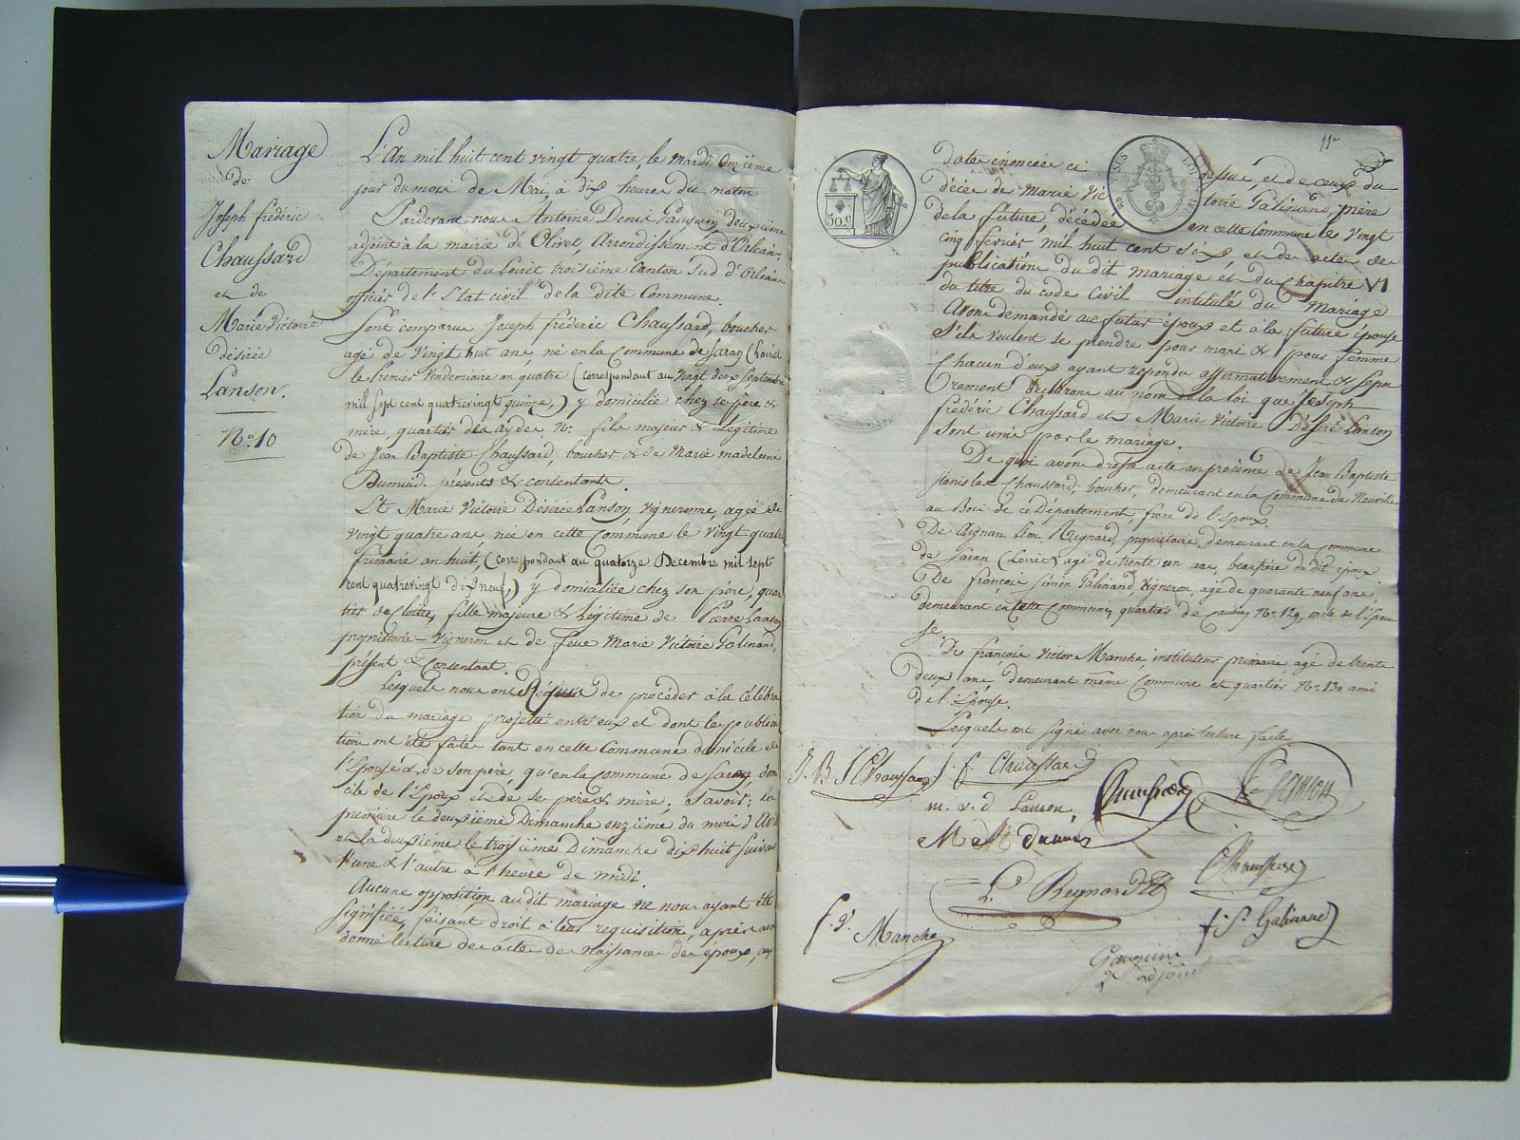 Mariage
de
Joseph frédéric
Chaussard
et de
Marie Victoire
désirée
Lanson.
N.o 10
L'An mil huit cent vingt quatre, le mardi onzième
jour du mois de Mai, à dix heures du matin
Pardevant nous Antoine Denis deuxième
adjoint à la mairie d'Olivet, Arrondissement d'Orléans,
Département du Loiret troisième Canton Sud d'Orléans
officier de l'Etat civil de la dite Commune.
Sont comparus Joseph frédéric Chaussard, boucher
agé de vingt huit ans né en la Commune de Saran (Loiret
le premier Vendemiaire an quatre (correspondant au vingt deux Septembre
mil sept cent quatrevingt quinze,) y domicilié chez ses père &
mère quartier des aydes N.o fils majeur & légitime
de Jean Baptiste Chaussard, boucher & de Marie madeleine
présents & consentants.
Et Marie Victoire Désirée Lanson, vigneronne, agée de
vingt quatre ans née en cette Commune le vingt quatre
frimaire an huit, (correspondant au quatorze Decembre mil sept
cent quatrevingt dix neuf,) y domiciliée chez son père, quar
tier de fille majeure & légitime de Pierre Lanson
propriétaire - Vigneron et de feue Marie Victoire Galinand,
présent & Consentant.
Lesquels nous ont Requis de procéder à la célébra
tion du mariage projetté entr'eux et dont les publica
tions ont été faites tant en cette Commune domicile de
l'Epouse & de son père, qu'en la commune de Saran, domi
cile de l'Epoux et de ses père & mère, Savoir; la
première le deuxième Dimanche onzième du mois d'Avril
et la deuxième le troisième Dimanche dix huit suivant
l'une & l'autre à l'heure de midi.
Aucune opposition au dit mariage ne nous ayant été
signifiée, faisant droit à leur requisition, après avoir
donné lecture des actes de naissance des époux, aux
11e
50c
dates énoncées ci dessus, et de ceux du
décès de Marie Victoire Galinand, mère
de la future, décédée en cette Commune le vingt
cinq février mil huit cent six, et des actes de
publication du dit mariage et du Chapitre VI
du titre du code Civil intitulé du Mariage
Avons demandé au futur époux et à la future épouse
S'ils veulent se prendre pour mari & pour femme
Chacun d'eux ayant répondu affirmativement & sépa
rément déclarons au nom de la loi que Joseph
frédéric Chaussard et Marie Victoire Désirée Lanson
sont unis par le mariage.
De quoi avons dressé acte en présence de Jean Baptiste
Stanislas Chaussard, boucher, demeurant en la Commune de Neuville
au Bois de ce Département, frère de l'Epoux
De Aignan Léon Reignard propriétaire, demeurant en la commune
de Saran (Loiret) agé de trente un ans, beaufrère du dit époux
De françois Simon Galinand, Vigneron, agé de quarante neuf ans,
demeurant en cette Commune, quartier de N.o 129 oncle de l'Epou
se.
De françois Victor Manche, instituteur primaire agé de trente
deux ans, demeurant même Commune et quartier N.o 130 ami
de l'Epouse.
Lesquels ont signé avec nous après lecture faite
J. B. S Chaussard
J. f. Chaussard
m. v. d Lanson
Chaussard
P. Lanson
Chaussard
L. Regnard
f. S. Galinand
f. V. Manche
adjoint